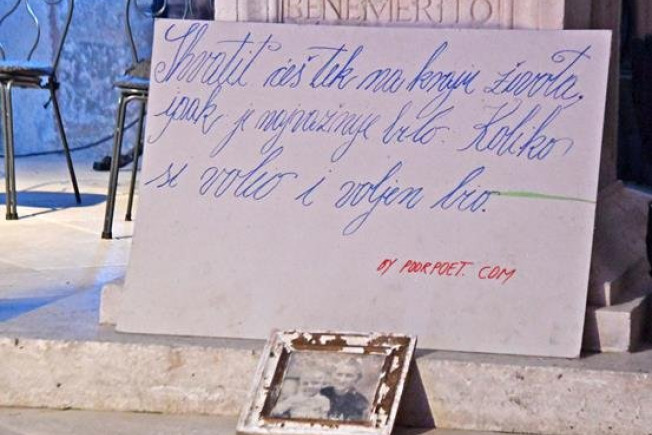 BENEMERITO
Shvatit ćeš tek na kraju života,
ipak je najvažnije bilo. Koliko
si volio i voljen bio.
BY POORPOET. COM